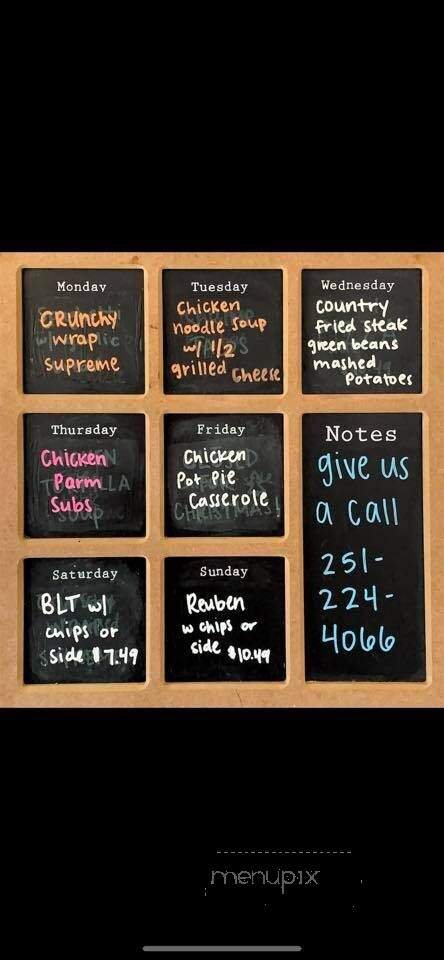 Monday
CRUNCHY
wrap
supreme
Tuesday
Chicken
noodle soup
w/ 1/2
grilled cheese
Wednesday
country
fried steak
green beans
mashed
Potatoes
Thursday
Chicken
Parm
Subs
Friday
Chicken
Pot Pie
Casserole
Notes
give us
a call
251-
224-
4066
Saturday
BLT w/
chips or
side $7.49
Sunday
Reuben
w chips or
side $10.49
menupix